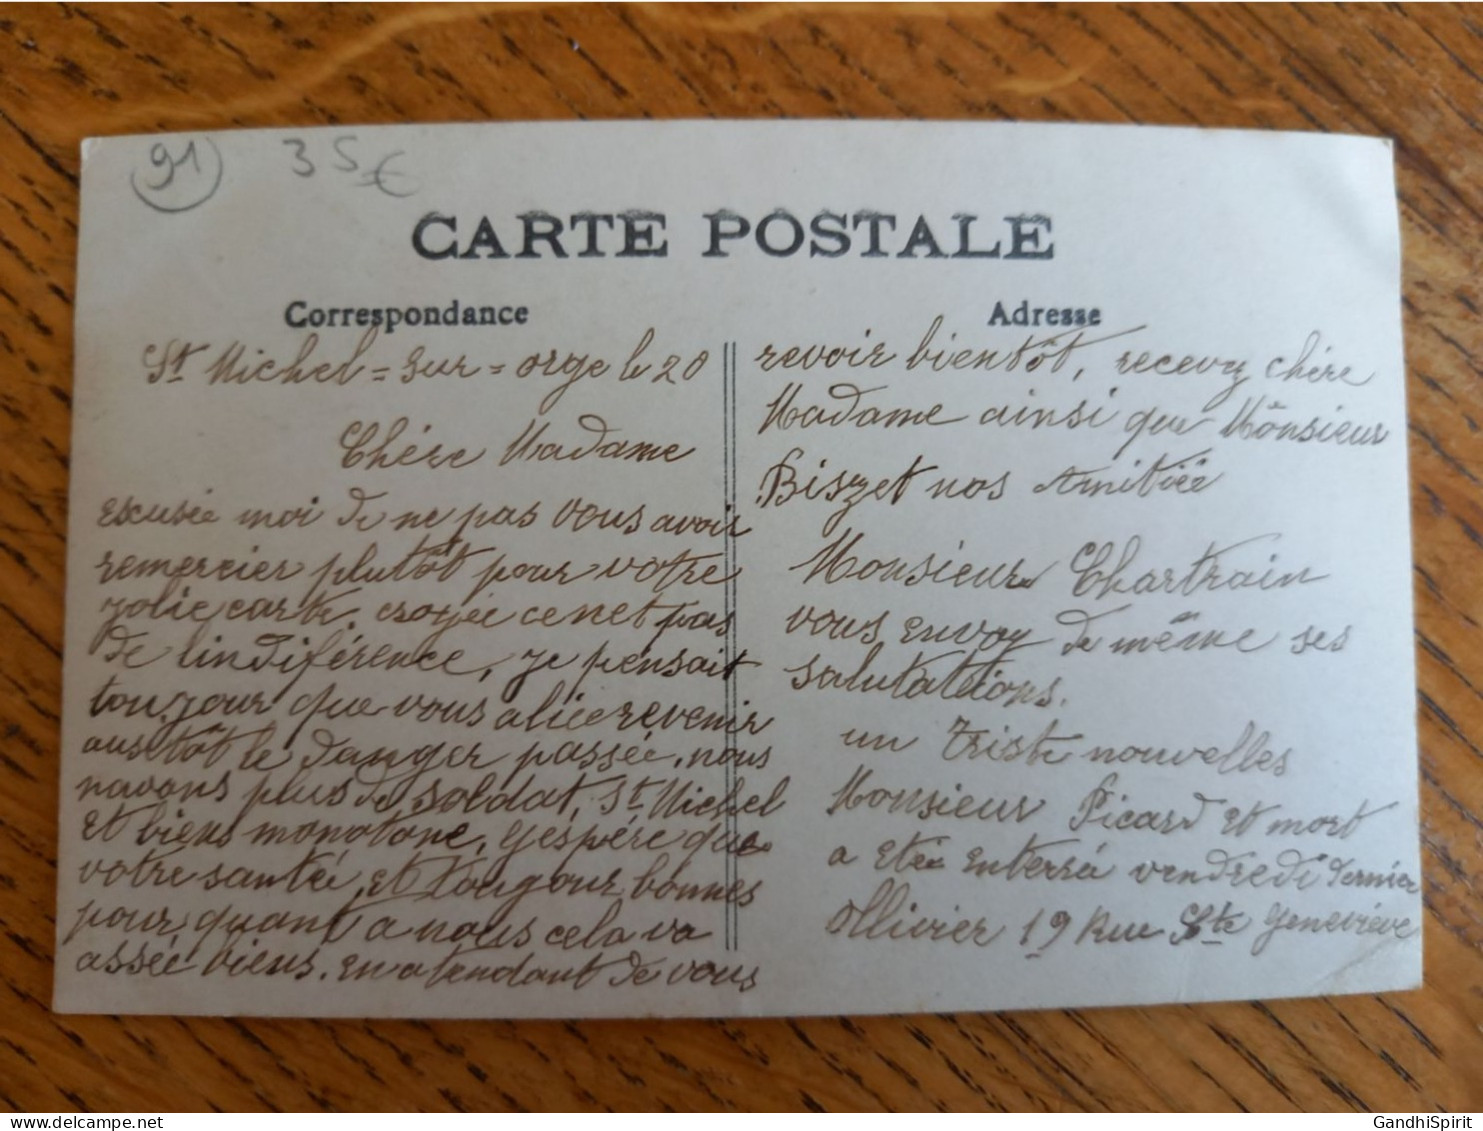 91 35€
CARTE POSTALE
Correspondance
St Michel = sur = orge le 20
Chére Madame
excusée moi de ne pas vous avoir
remercier plutôt pour votre
jolie carte, croyée ce net pas
de lindiférence, je pensait
toujour que vous alice revenir
ausitôt le danger passée, nous
navons plus de soldat, St Michel
et biens monotone, jéspére que
votre santée et toujour bonnes
pour quant a nous cela va
assée biens. en atendant de vous
Adresse
revoir bientôt, recevez chére
Madame ainsi que Monsieur
Biszet nos Amitiée
Monsieur Chartrain
vous envoy de même ses
salutations.
un triste nouvelles
Monsieur Picard et mort
a etée enterré vendredi dernier
Ollivier 19 Rue Ste Geneviéve
GandhiSpirit